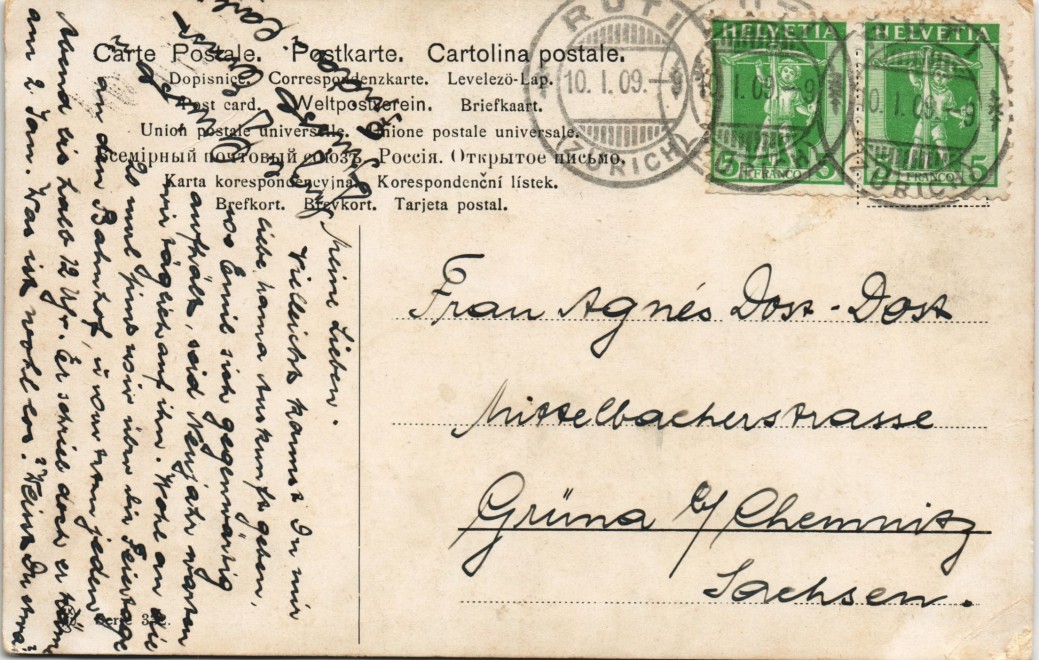 Carte Postale. Postkarte. Cartolina postale.
Dopisnice. Correspondenzkarte. Levelező-Lap.
Post card. Weltpostverein. Briefkaart.
Union postale universelle. Unione postale universale.
Всемірный почтовый союзъ. Россія. Открытое письмо.
Karta korespondencyjna. Korespondenční lístek.
Brefkort. Brevkort. Tarjeta postal.
RÜTI
10.I.09.-9
(ZÜRICH)
HELVETIA
5 5
FRANCO
HELVETIA
5 5
FRANCO
RÜTI
10.I.09.-9
(ZÜRICH)
RÜTI
10.I.09.-9
(ZÜRICH)
Frau Agnés Dost-Dost
Mittelbacherstrasse
Grüna b/Chemnitz
Sachsen.
Meine Lieben.
Vielleicht kannst Du mir
liebe Mama Auskunft geben,
wo Emil sich gegenwärtig
aufhält, seid Neujahr warten
wir täglich auf ihn. Wohl an die
20 mal sind wir über die Feiertage
an den Bahnhof, u. war man jeden
Mama bis halb 12 Uhr. Er schrieb doch er käm
am 2 Jan. Was ist wohl los? Weisst Du etwa
Serie